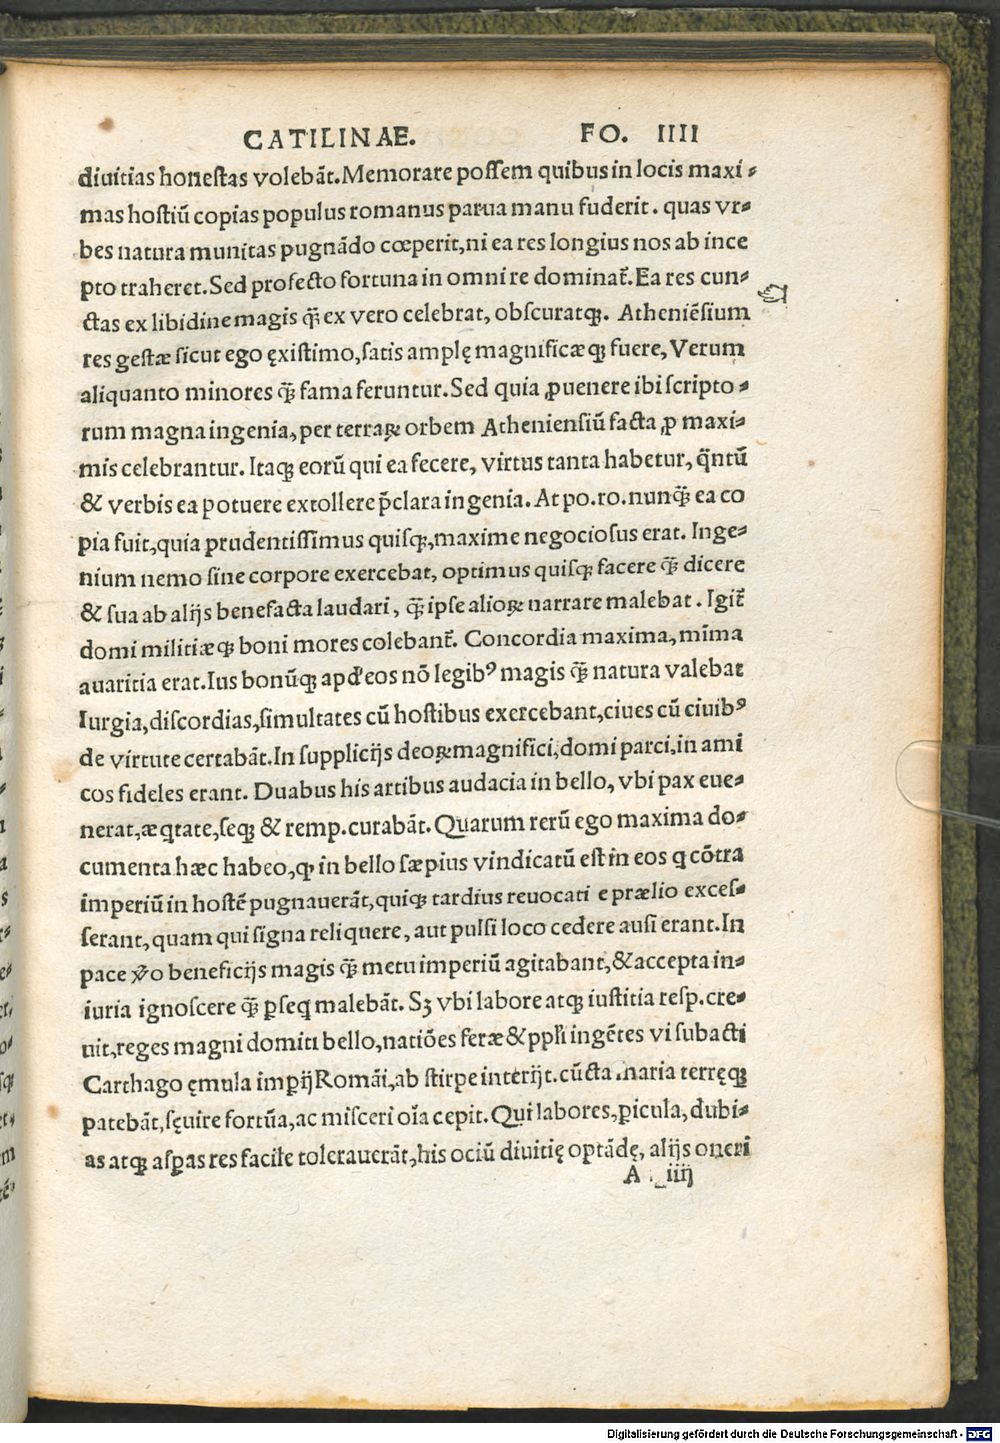 CATILINAE. FO. IIII
diuitias honestas volebāt. Memorare possem quibus in locis maxi⸗
mas hostiū copias populus romanus parua manu fuderit. quas vr⸗
bes natura munitas pugnādo cœperit, ni ea res longius nos ab ince
pto traheret. Sed profecto fortuna in omni re dominat᷑. Ea res cun⸗
ctas ex libidine magis q̄ꝫ ex vero celebrat, obscuratqꝫ. Atheniēsium
res gestæ sicut ego ęxistimo, satis amplę magnificæqꝫ fuere, Verum
aliquanto minores q̄ꝫ fama feruntur. Sed quia ꝓuenere ibi scripto⸗
rum magna ingenia, per terraꝝ orbem Atheniensiū facta ꝓ maxi⸗
mis celebrantur. Itaqꝫ eorū qui ea fecere, virtus tanta habetur, q̄ntū
& verbis ea potuere extollere p̄clara ingenia. At po. ro. nunq̄ꝫ ea co
pia fuit, quia prudentissimus quisqꝫ, maxime negociosus erat. Inge⸗
nium nemo sine corpore exercebat, optimus quisqꝫ facere q̄ꝫ dicere
& sua ab alijs benefacta laudari, q̄ꝫ ipse alioꝝ narrare malebat. Igit᷑
domi militiæqꝫ boni mores colebant᷑. Concordia maxima, mīma
auaritia erat. Ius bonūqꝫ apd' eos nō legibꝰ magis q̄ꝫ natura valebat
Iurgia, discordias, simultates cū hostibus exercebant, ciues cū ciuibꝰ
de virtute certabāt. In supplicijs deoꝝ magnifici, domi parci, in ami
cos fideles erant. Duabus his artibus audacia in bello, vbi pax eue⸗
nerat, æq̇tate, seqꝫ & remp. curabāt. Quarum rerū ego maxima do⸗
cumenta hæc habeo, ꝙ in bello sæpius vindicatū est in eos q̇ cōtra
imperiū in hostē pugnauerāt, quiqꝫ tardius reuocati e prælio exces⸗
serant, quam qui signa reliquere, aut pulsi loco cedere ausi erant. In
pace ꝟo beneficijs magis q̄ꝫ metu imperiū agitabant, & accepta in⸗
iuria ignoscere q̄ꝫ ꝑseq̇ malebāt. Sꝫ vbi labore atqꝫ iustitia resp. cre⸗
uit, reges magni domiti bello, natiōes feræ & ppłi ingētes vi subacti
Carthago ęmula imꝑij Romāi, ab stirpe interijt. cūcta maria terręqꝫ
patebāt, sęuire fortūa, ac misceri oīa cepit. Qui labores, ꝑicula, dubi⸗
as atqꝫ asꝑas res facile tolerauerāt, his ociū diuitię optādę, alijs oneri
A iiij
Digitalisierung gefördert durch die Deutsche Forschungsgemeinschaft - DFG